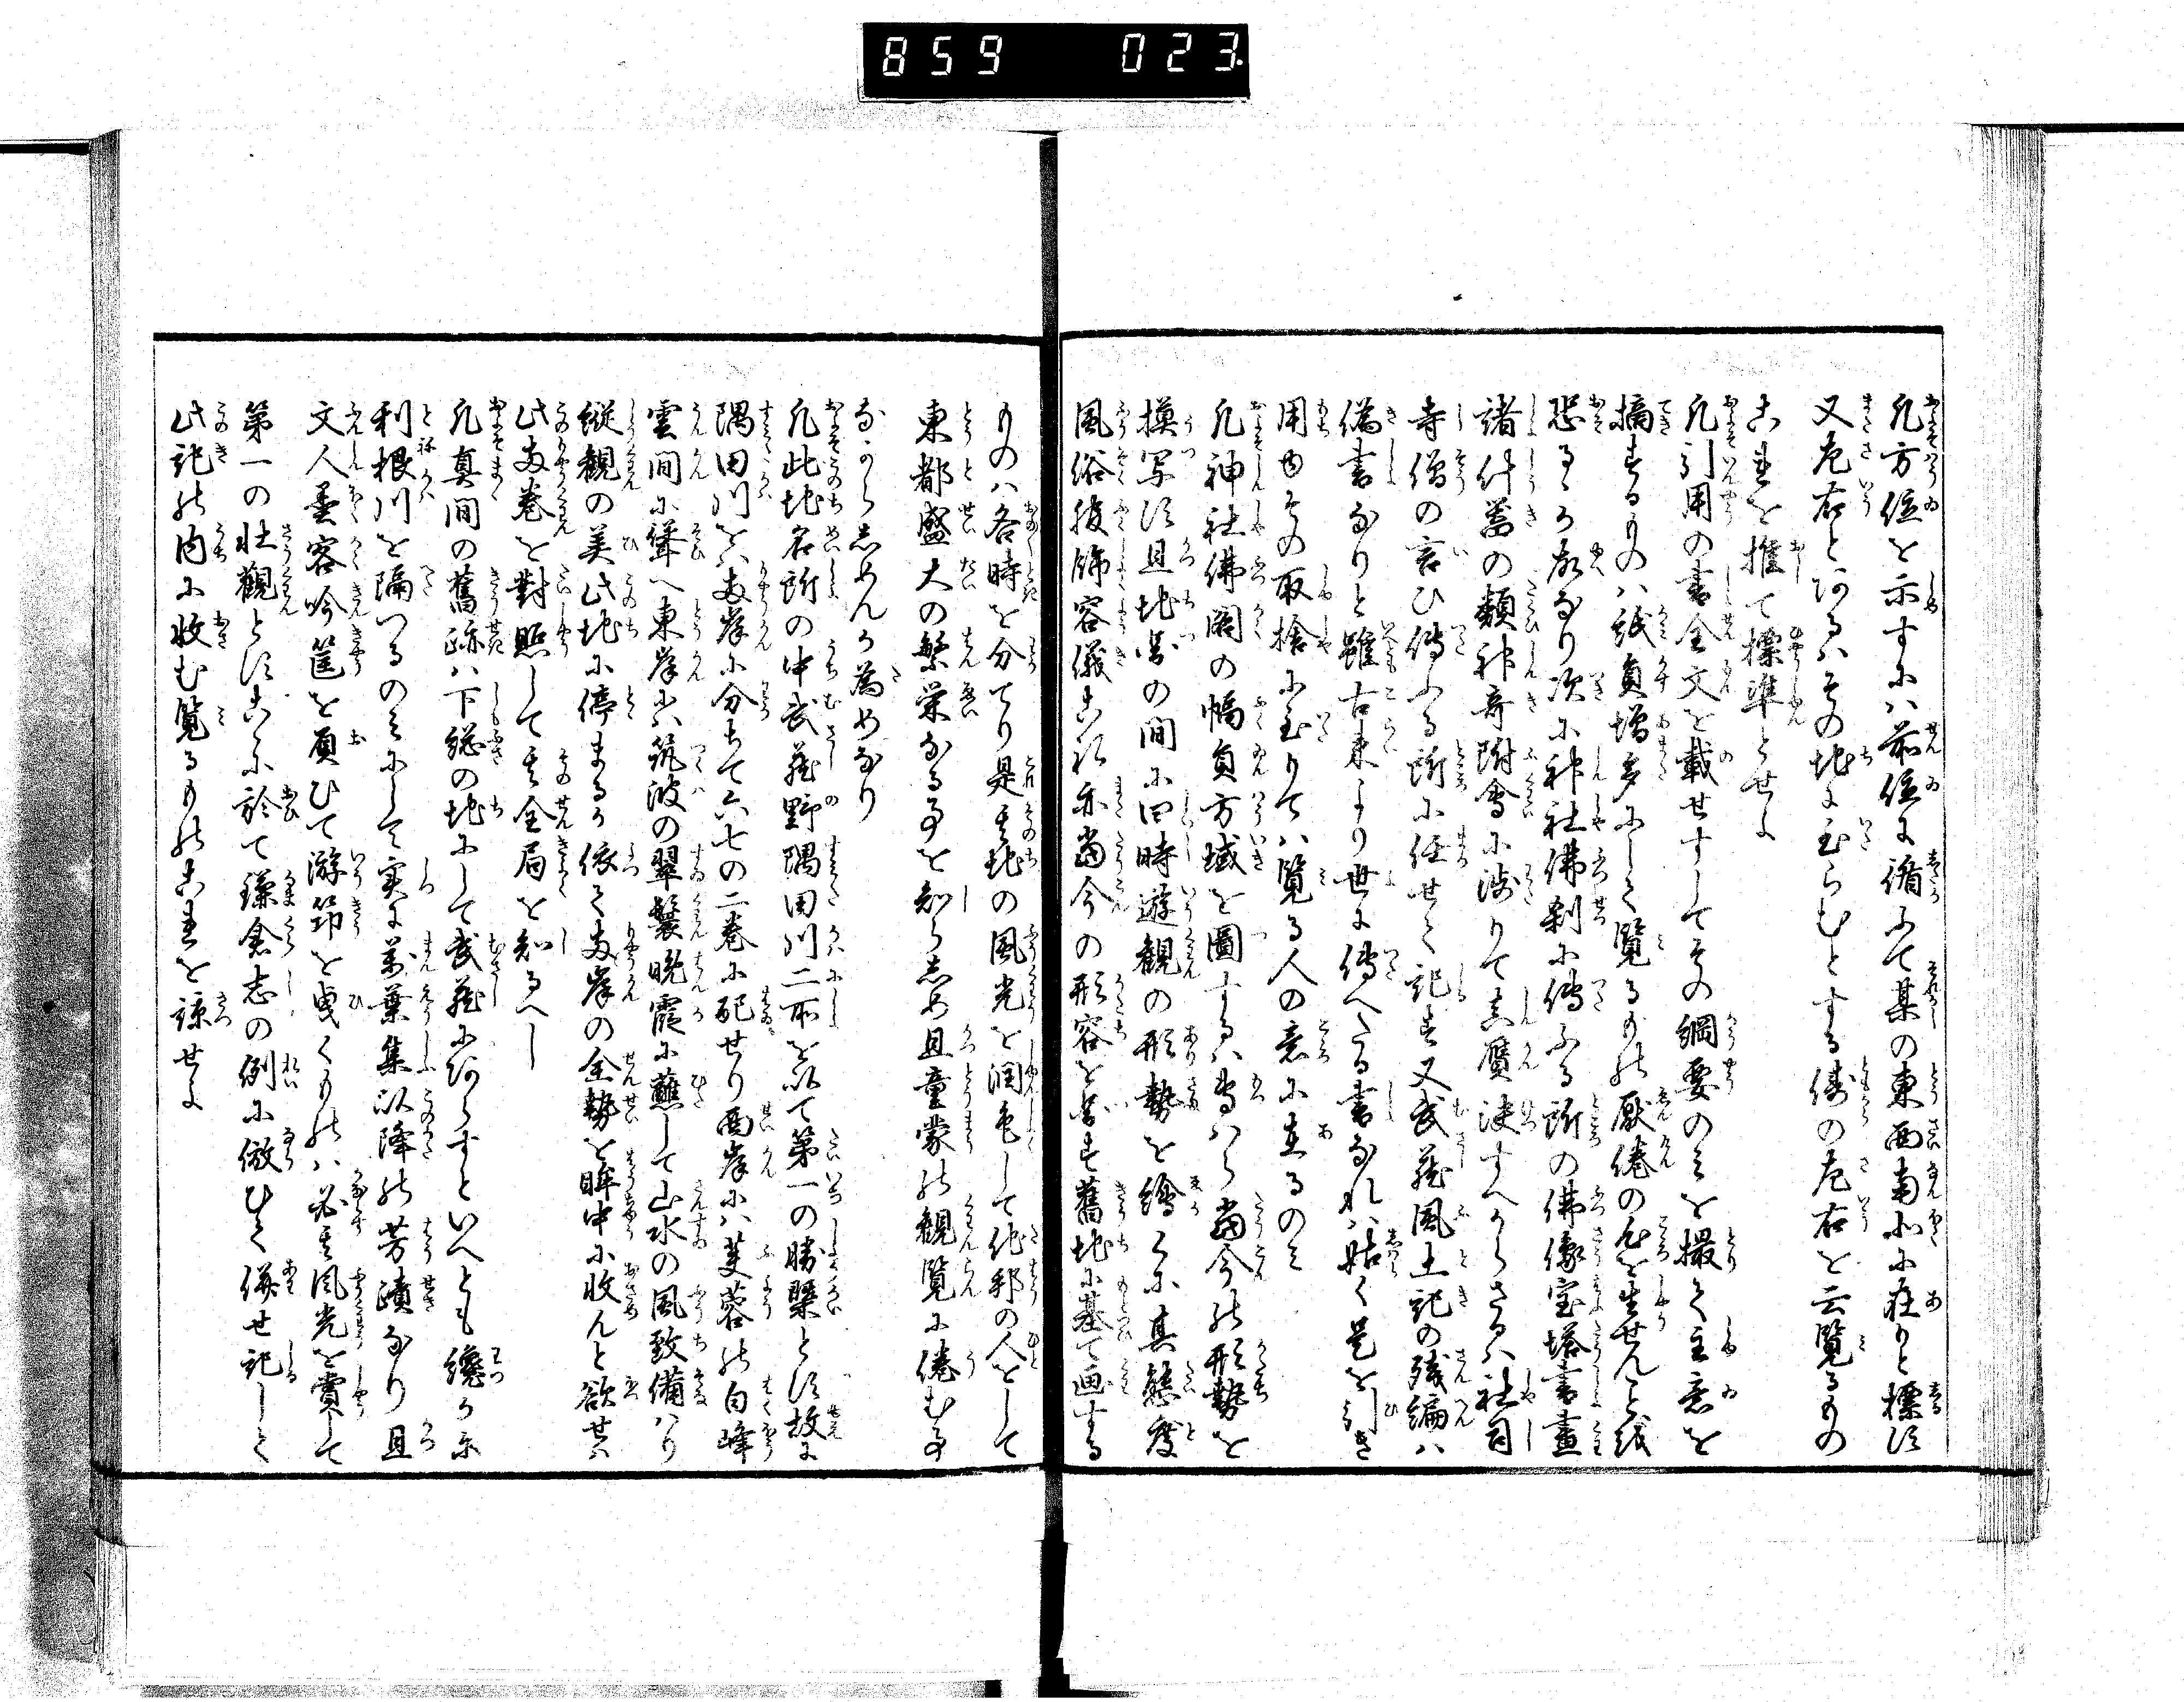 859 023.
凡方位を示すには前位に循ふて某の東西南北に在りと標す
又左右とあるはその地に至らむとする街の左右を云覧るもの
これを推て標準とせよ
凡引用の書全文を載せすしてその綱要のみを撮て主意を
摘するものは紙員増多にして覧るもの厭倦の心を生せんことを
恐るゝか故なり次に神社佛刹に傳ふる所の佛像宝塔書畫
諸什器の類神奇附會に渉りて真贋決すへからさるは社司
寺僧の言ひ傳ふる所に任せて記す又武蔵風土記の残編は
偽書なりと雖古来より世に傳へたる書なれは姑く是を引き
用ゆその取捨に至りては覧る人の意に在るのみ
凡神社佛閣の幅員方域を圖するは専はら當今の形勢を
摸写す且地勢の間に四時遊観の形勢を繪くに其態度
風俗服飾容儀これ亦當今の形容を写す舊地に基て画する
ものは各時を分てり是其地の風光を潤色して他邦の人をして
東都盛大の繁栄なる事を知らしめ且童蒙の観覧に倦む事
なからしめんか為めなり
凡此地名所の中武蔵野隅田川二所を以て第一の勝槩とす故に
隅田川を両岸に分ちて六七の二巻に配せり西岸には芙蓉の白峰
雲間に聳へ東岸は筑波の翠鬟晩霞に蘸して山水の風致備はり
縦観の美此地に停まるか依て両岸の全勢を眸中に収んと欲せは
此両巻を對照して其全局を知るへし
凡真間の舊跡は下総の地にして武蔵にあらすといへとも纔かに
利根川を隔つるのみにして実に萬葉集以降の芳蹟なり且
文人墨客吟筐を負ひて游筇を曳くものは必其風光を賞して
第一の壮觀とすこゝに於て鎌倉志の例に倣ひて併せ記して
此記の内に收む覧るものこれを諒せよ